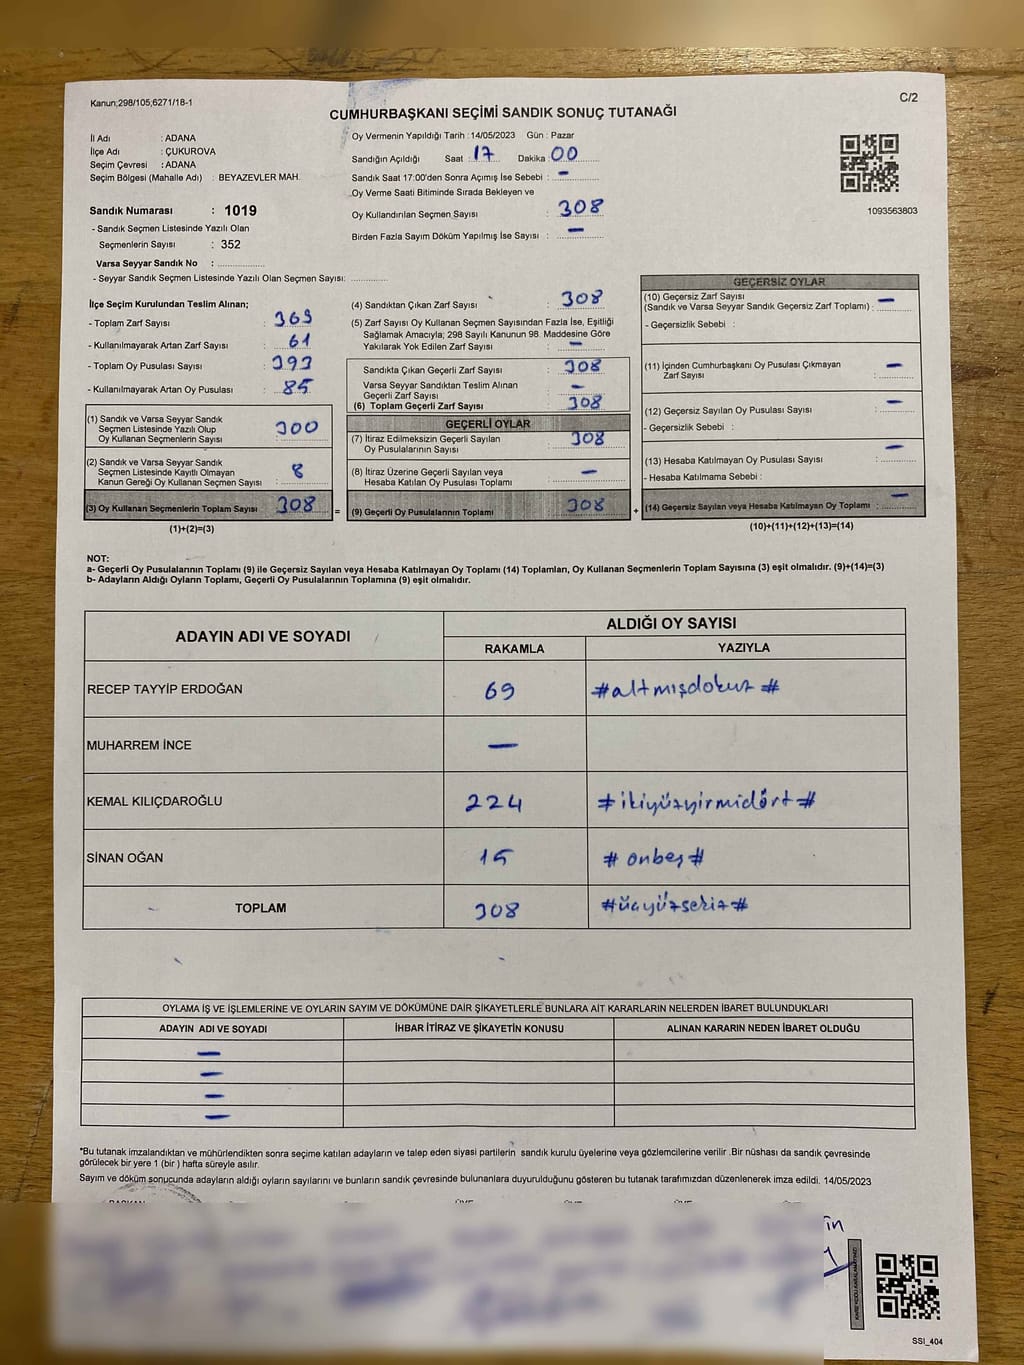 Kanun;298/105;6271/18-1
C/2
CUMHURBAŞKANI SEÇİMİ SANDIK SONUÇ TUTANAĞI
İl Adı : ADANA
İlçe Adı : ÇUKUROVA
Seçim Çevresi : ADANA
Seçim Bölgesi (Mahalle Adı) : BEYAZEVLER MAH.
Sandık Numarası : 1019
- Sandık Seçmen Listesinde Yazılı Olan
Seçmenlerin Sayısı : 352
Varsa Seyyar Sandık No :
- Seyyar Sandık Seçmen Listesinde Yazılı Olan Seçmen Sayısı:
Oy Vermenin Yapıldığı Tarih : 14/05/2023 Gün : Pazar
Sandığın Açıldığı Saat : 17 Dakika : 00
Sandık Saat 17:00'den Sonra Açımış İse Sebebi : –
Oy Verme Saati Bitiminde Sırada Bekleyen ve
Oy Kullandırılan Seçmen Sayısı : 308
Birden Fazla Sayım Döküm Yapılmış İse Sayısı : –
1093563803
İlçe Seçim Kurulundan Teslim Alınan;
- Toplam Zarf Sayısı : 369
- Kullanılmayarak Artan Zarf Sayısı : 61
- Toplam Oy Pusulası Sayısı : 393
- Kullanılmayarak Artan Oy Pusulası : 85
(1) Sandık ve Varsa Seyyar Sandık
Seçmen Listesinde Yazılı Olup
Oy Kullanan Seçmenlerin Sayısı : 300
(2) Sandık ve Varsa Seyyar Sandık
Seçmen Listesinde Kayıtlı Olmayan
Kanun Gereği Oy Kullanan Seçmen Sayısı : 8
(3) Oy Kullanan Seçmenlerin Toplam Sayısı : 308
(1)+(2)=(3)
(4) Sandıktan Çıkan Zarf Sayısı : 308
(5) Zarf Sayısı Oy Kullanan Seçmen Sayısından Fazla İse, Eşitliği
Sağlamak Amacıyla; 298 Sayılı Kanunun 98. Maddesine Göre
Yakılarak Yok Edilen Zarf Sayısı : –
Sandıkta Çıkan Geçerli Zarf Sayısı : 308
Varsa Seyyar Sandıktan Teslim Alınan
Geçerli Zarf Sayısı : –
(6) Toplam Geçerli Zarf Sayısı : 308
GEÇERLİ OYLAR
(7) İtiraz Edilmeksizin Geçerli Sayılan
Oy Pusulalarının Sayısı : 308
(8) İtiraz Üzerine Geçerli Sayılan veya
Hesaba Katılan Oy Pusulası Toplamı : –
= (9) Geçerli Oy Pusulalarının Toplamı : 308 +
GEÇERSİZ OYLAR
(10) Geçersiz Zarf Sayısı
(Sandık ve Varsa Seyyar Sandık Geçersiz Zarf Toplamı) : –
- Geçersizlik Sebebi :
(11) İçinden Cumhurbaşkanı Oy Pusulası Çıkmayan
Zarf Sayısı : –
(12) Geçersiz Sayılan Oy Pusulası Sayısı : –
- Geçersizlik Sebebi :
(13) Hesaba Katılmayan Oy Pusulası Sayısı : –
- Hesaba Katılmama Sebebi :
(14) Geçersiz Sayılan veya Hesaba Katılmayan Oy Toplamı : –
(10)+(11)+(12)+(13)=(14)
NOT:
a- Geçerli Oy Pusulalarının Toplamı (9) ile Geçersiz Sayılan veya Hesaba Katılmayan Oy Toplamı (14) Toplamları, Oy Kullanan Seçmenlerin Toplam Sayısına (3) eşit olmalıdır. (9)+(14)=(3)
b- Adayların Aldığı Oyların Toplamı, Geçerli Oy Pusulalarının Toplamına (9) eşit olmalıdır.
ADAYIN ADI VE SOYADI
ALDIĞI OY SAYISI
RAKAMLA YAZIYLA
RECEP TAYYİP ERDOĞAN 69 #altmışdokuz#
MUHARREM İNCE –
KEMAL KILIÇDAROĞLU 224 #ikiyüzyirmidört#
SİNAN OĞAN 15 #onbeş#
TOPLAM 308 #üçyüzsekiz#
OYLAMA İŞ VE İŞLEMLERİNE VE OYLARIN SAYIM VE DÖKÜMÜNE DAİR ŞİKAYETLERLE BUNLARA AİT KARARLARIN NELERDEN İBARET BULUNDUKLARI
ADAYIN ADI VE SOYADI İHBAR İTİRAZ VE ŞİKAYETİN KONUSU ALINAN KARARIN NEDEN İBARET OLDUĞU
–
–
–
–
*Bu tutanak imzalandıktan ve mühürlendikten sonra seçime katılan adayların ve talep eden siyasi partilerin sandık kurulu üyelerine veya gözlemcilerine verilir .Bir nüshası da sandık çevresinde
görülecek bir yere 1 (bir ) hafta süreyle asılır.
Sayım ve döküm sonucunda adayların aldığı oyların sayılarını ve bunların sandık çevresinde bulunanlara duyurulduğunu gösteren bu tutanak tarafımızdan düzenlenerek imza edildi. 14/05/2023
SSI_404